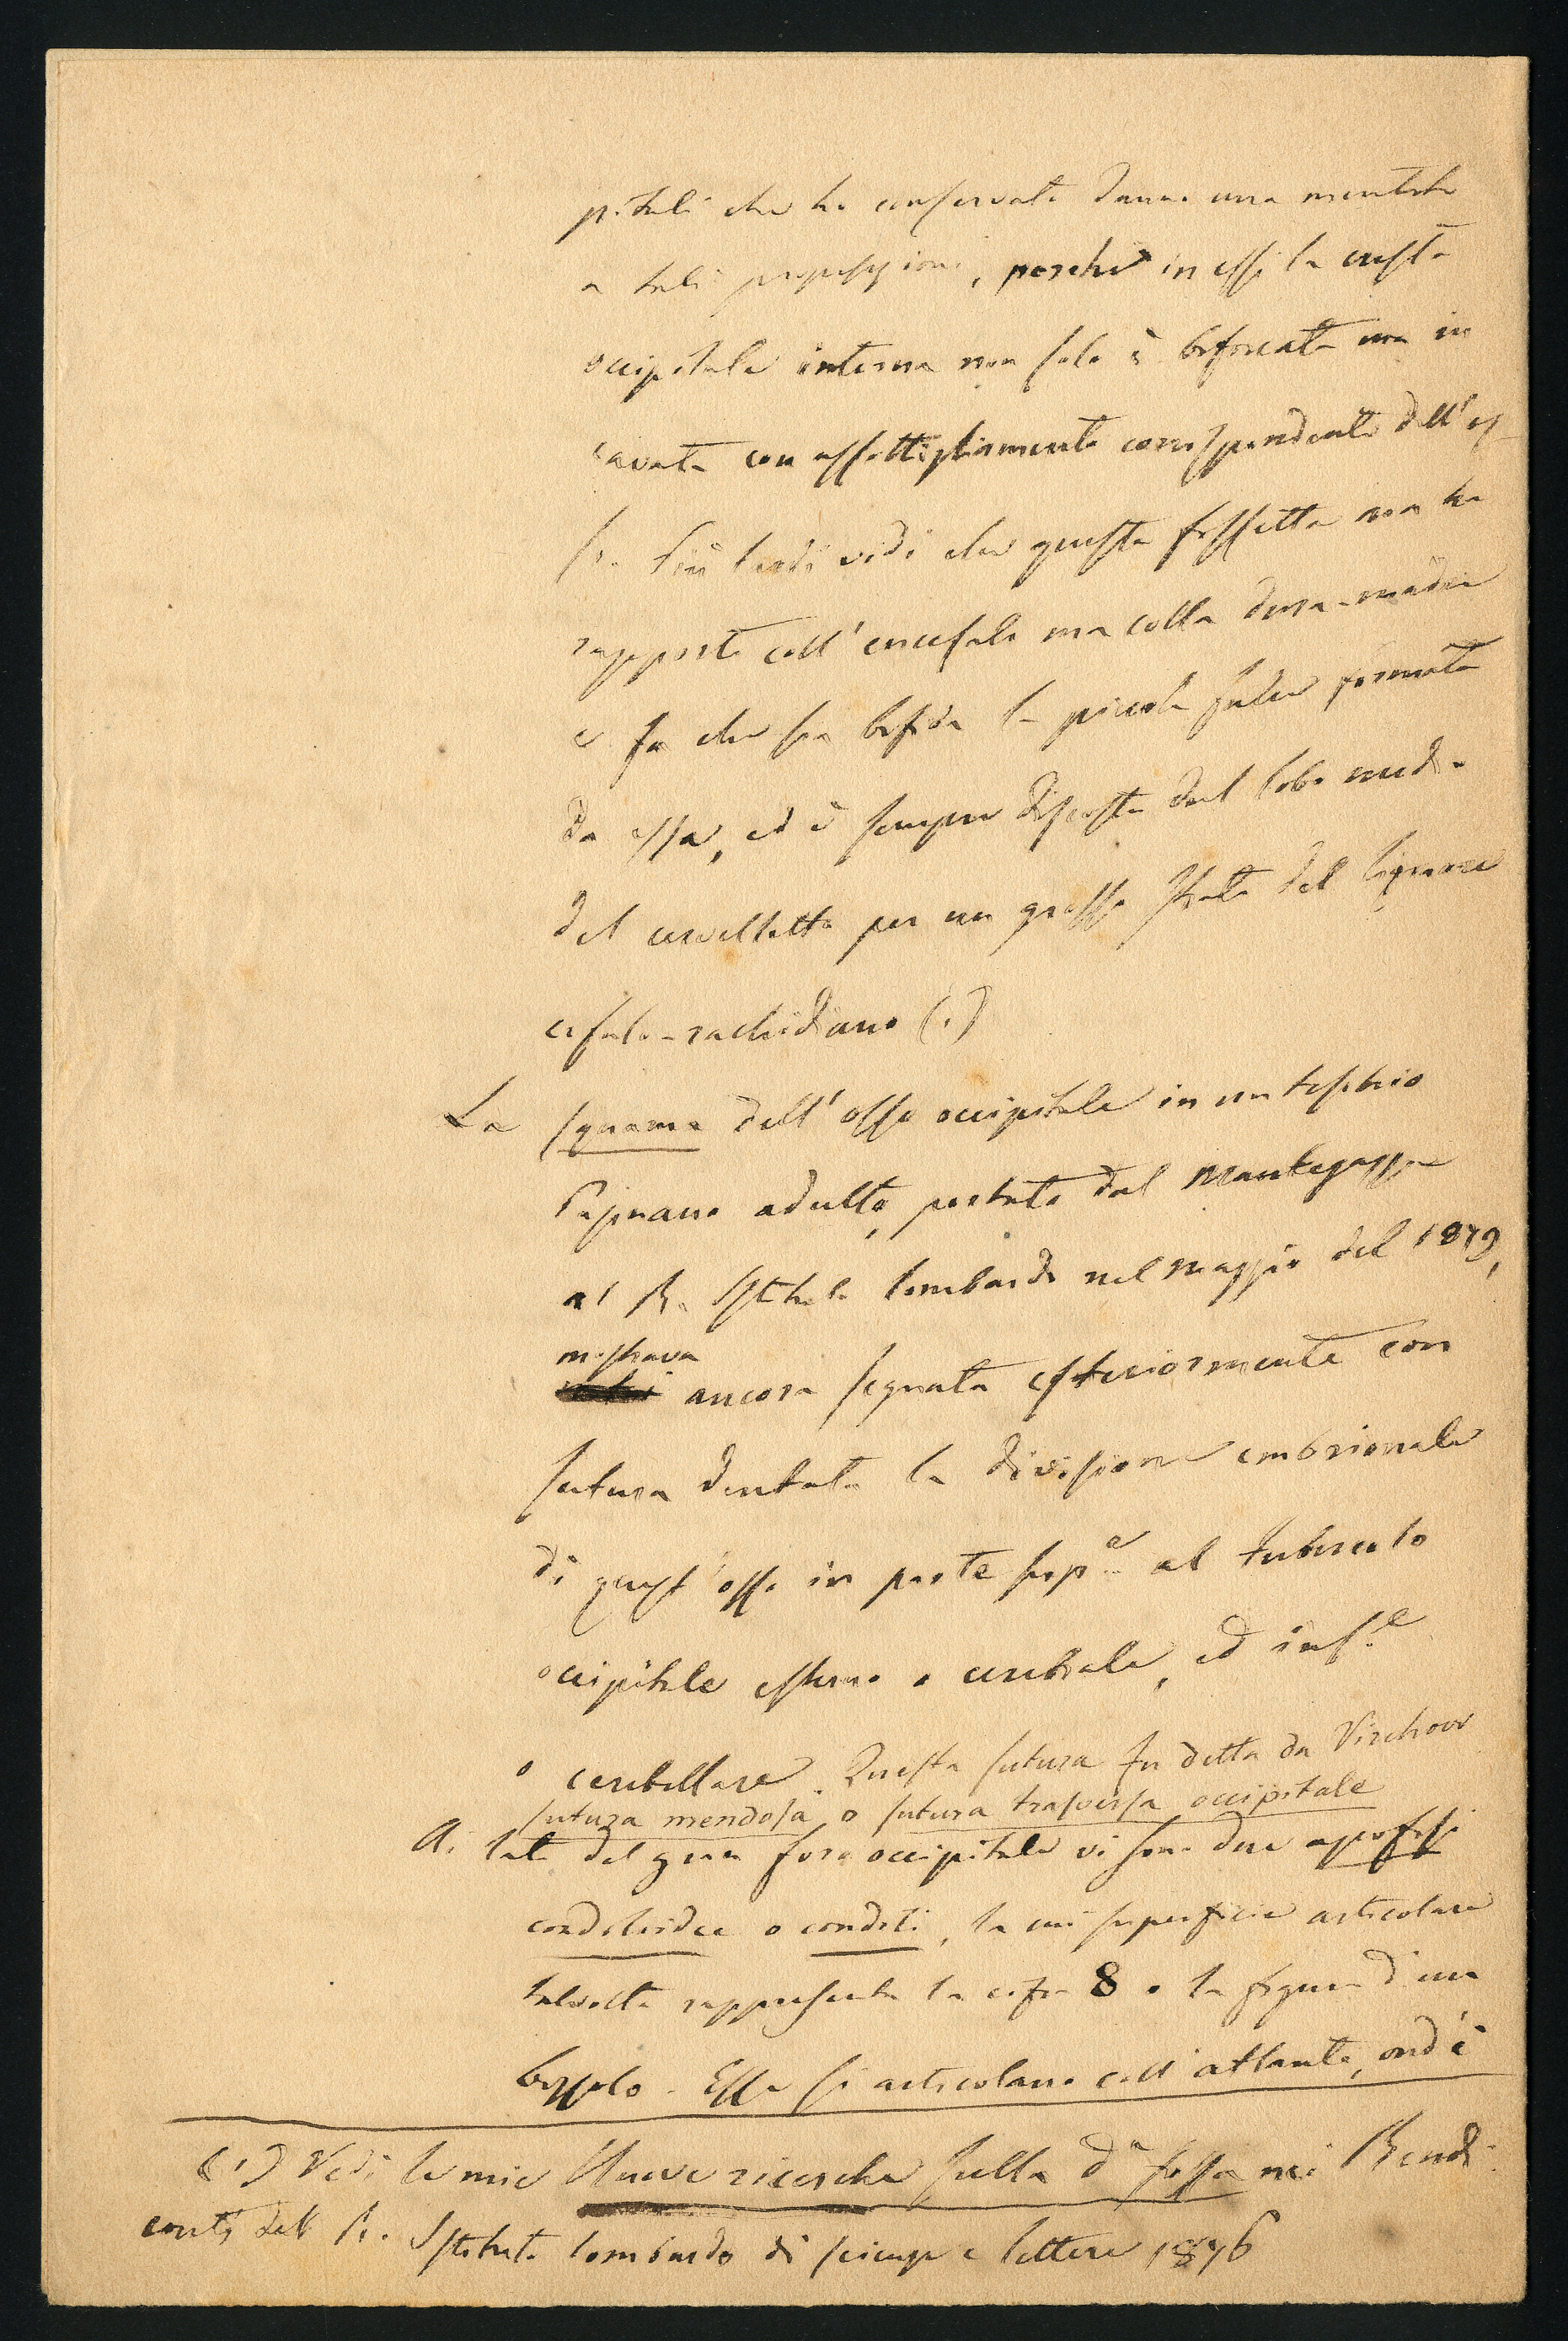 pitali che ho conservati danno una mentita
a tali proposizioni, perché in essi la cresta
occipitale interna non solo è biforcata ma in
cavata con assottigliamento corrispondente dell'os
so. Più tardi vidi che questa fossetta non ha
rapporto coll'encefalo ma colla dura-madre
e fa che sia bifida la piccola falce formata
da essa, ed è sempre discosta dal lobo medio
del cervelletto per un grosso strato del liquore
cefalo-rachidiano (1)
La squama dell'osso occipitale in un teschio
Papuano adulto, portato dal Mantegazza
al R. Istituto lombardo nel maggio del 1879,
mostrava
ancora segnata esteriormente con
sutura dentata la divisione embrionale
di quest'osso in parte supe al tubercolo
occipitale esterno o cerebrale, ed infe
o cerebellare. Questa sutura fu detta da Virchow
sutura mendosa o sutura trasversa occipitale
A. lati del gran foro occipitale vi sono due apofisi
condiloidee o condili, la cui superficie articolare
talvolta rappresenta la cifra 8 o la figura d'un
bossolo. Esse si articolano coll'atlante, ond'è
(1) Vedi le mie Nuove ricerche sulla da fossa nei Rendi
conti del R. Istituto lombardo di scienze e lettere 1876